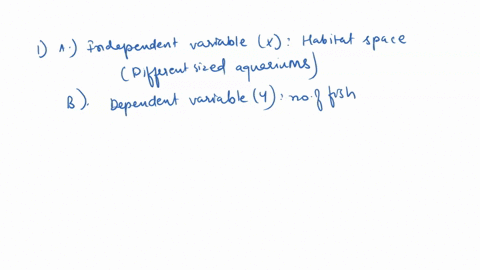 1) A.) Independent variable (X): Habitat space
(Different sized aquariums)
B). Dependent variable (Y): no. of fish